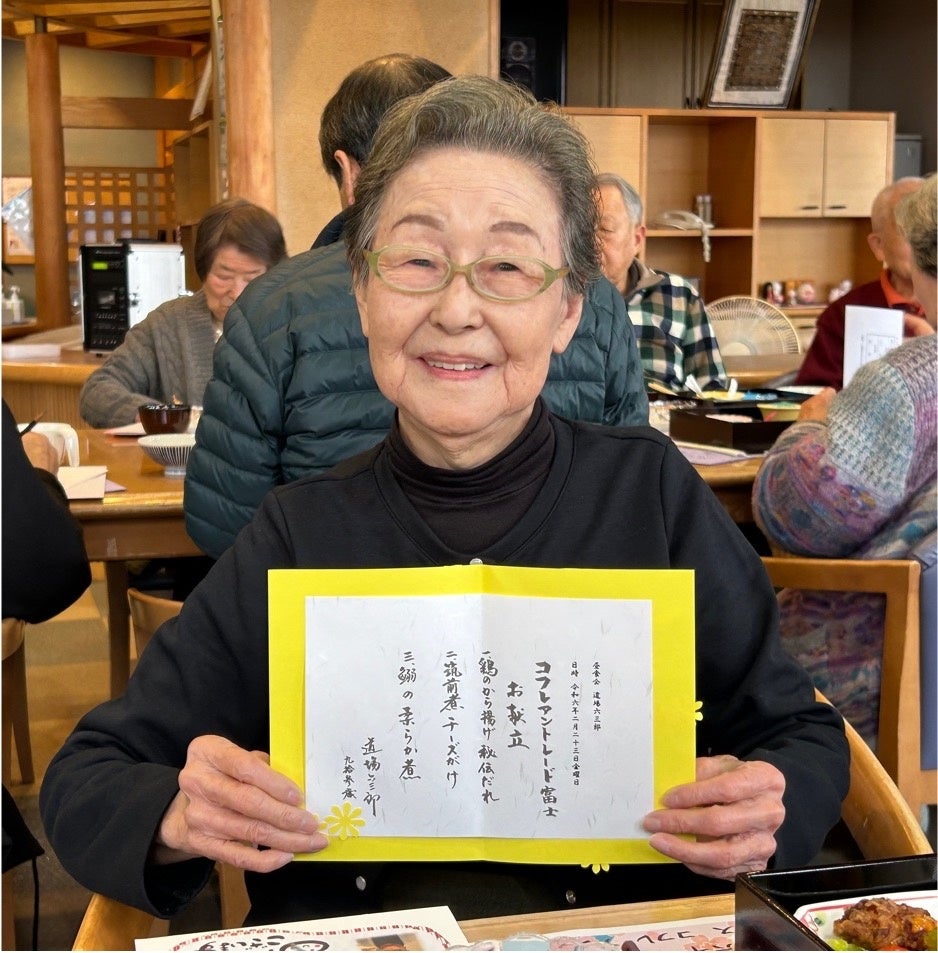 昼食会 道場六三郎
日時 令和六年二月二十三日金曜日
コフレアントレード富士
お献立
一、鶏のから揚げ 秘伝だれ
二、筑前煮 チーズがけ
三、鰯の柔らか煮
道場六三郎
九拾参歳
コフレ